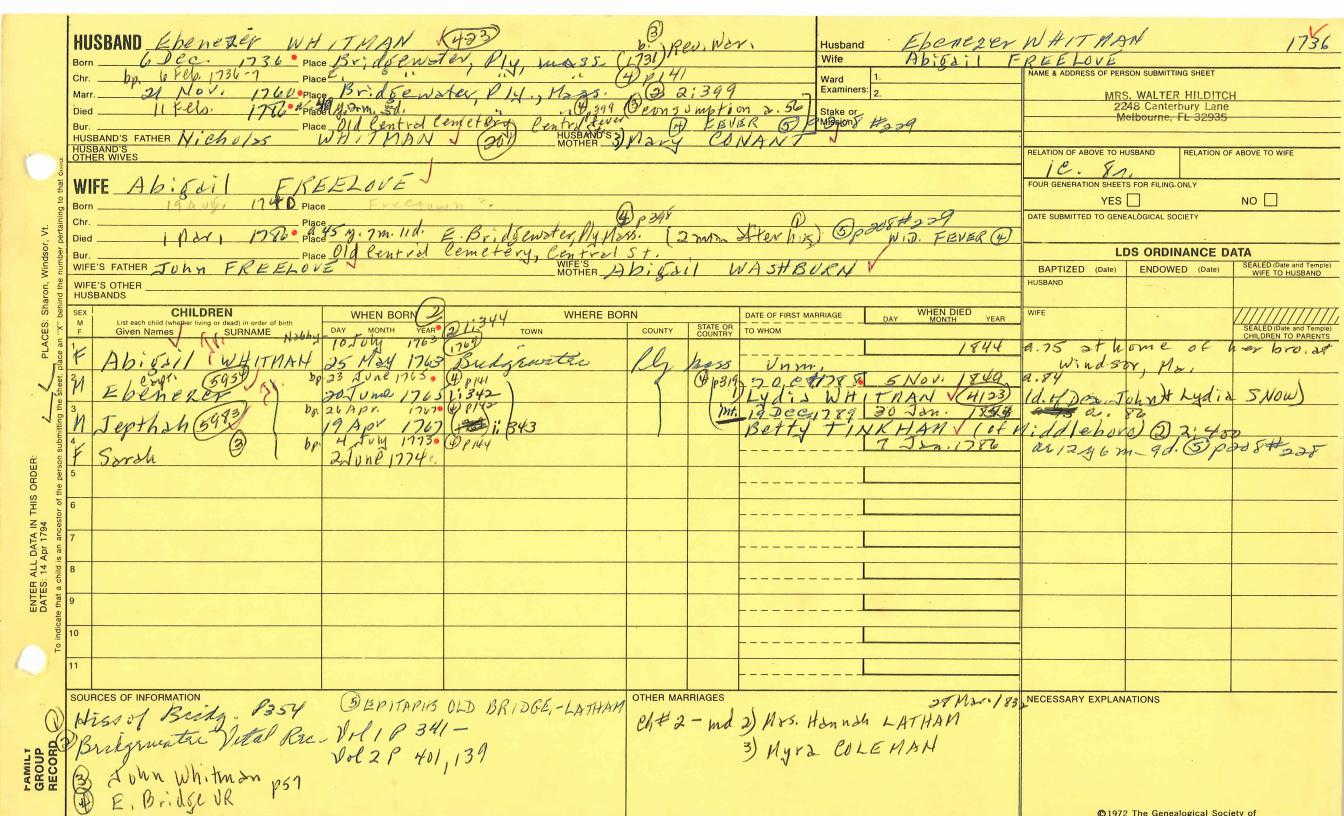 HUSBAND Ebenezer WHITMAN 423
③ b. (1731) Rev. War.
Born 6 Dec. 1736 Place Bridgewater, Ply, Mass
Chr. bp. 6 Feb. 1736-7 Place " " " ④ p141
Marr. 21 Nov. 1760 Place Bridgewater, Ply., Mass. ② 2:399
Died 11 Feb. 1786 Place ④ 399 ③ consumption a. 56
Bur. Place Old Central Cemetery Central ④ FEVER ⑤ #229
HUSBAND'S FATHER Nicholas WHITMAN 20 HUSBAND'S MOTHER 3) Mary CONANT
HUSBAND'S OTHER WIVES
Husband Ebenezer WHITMAN 1736
Wife Abigail FREELOVE
Ward Examiners: 1.
2.
Stake or Mission
NAME & ADDRESS OF PERSON SUBMITTING SHEET
MRS. WALTER HILDITCH
2248 Canterbury Lane
Melbourne, FL 32935
RELATION OF ABOVE TO HUSBAND RELATION OF ABOVE TO WIFE
FOUR GENERATION SHEETS FOR FILING ONLY
YES NO
DATE SUBMITTED TO GENEALOGICAL SOCIETY
WIFE Abigail FREELOVE
Born 1740 Place Freetown
Chr. Place ④ p398
Died 1 Mar, 1786 Place a 45 y. 7m. 11d. E. Bridgewater, Ply Mass. (2 mm after his) ① ⑤ p228 #229
WID. FEVER ④
Bur. Place Old Central Cemetery, Central St.
WIFE'S FATHER John FREELOVE WIFE'S MOTHER Abigail WASHBURN
WIFE'S OTHER HUSBANDS
LDS ORDINANCE DATA
BAPTIZED (Date) ENDOWED (Date) SEALED (Date and Temple) WIFE TO HUSBAND
HUSBAND
WIFE
SEALED (Date and Temple) CHILDREN TO PARENTS
SEX M F
CHILDREN
List each child (whether living or dead) in order of birth
Given Names SURNAME
WHEN BORN ②
DAY MONTH YEAR
WHERE BORN
TOWN COUNTY STATE OR COUNTRY
DATE OF FIRST MARRIAGE
TO WHOM
WHEN DIED
DAY MONTH YEAR
② 1:344
1 Nabby 10 July 1763 (1769) 1844 a. 75 at home of her bro. at
F Abigail WHITMAN 25 May 1763 Bridgewater Ply Mass Unm. Windsor, Ma.
2 bp 23 June 1765 ④ p141 ④ p319 20 Oct 1785 5 Nov. 1840 a. 84
M Ebenezer Capt. 5954 20 June 1765 1:342 Lydia WHITMAN (4123) (d. of Dea. John & Lydia SNOW)
3 bp. 26 Apr. 1767 ④ p142 Int. 19 Dec. 1789 30 Jan. a. 86
M Jepthah 5983 19 Apr 1767 ii:343 Betty TINKHAM (of Middleboro) ② 2:400
4 ③ bp. 4 July 1773 ④ p144 7 Jan. 1786 ae 12 y 6 m 9d. ⑤ p228 #228
F Sarah 2 June 1774
5
6
7
8
9
10
11
SOURCES OF INFORMATION
① Hiss of Bridg. P354
② Bridgewater Vital Rec- Vol 1 P 341-
Vol 2 P 401, 139
③ John Whitman p57
④ E. Bridge VR
⑤ EPITAPHS OLD BRIDGE,-LATHAM
OTHER MARRIAGES
27 Mar. 1832
Ch #2 - md 2) Mrs. Hannah LATHAM
3) Myra COLEMAN
NECESSARY EXPLANATIONS
©1972 The Genealogical Society of
FAMILY GROUP RECORD
ENTER ALL DATA IN THIS ORDER:
DATES: 14 Apr 1794
PLACES: Sharon, Windsor, Vt.
To indicate that a child is an ancestor of the person submitting the sheet, place an "X" behind the number pertaining to that child.